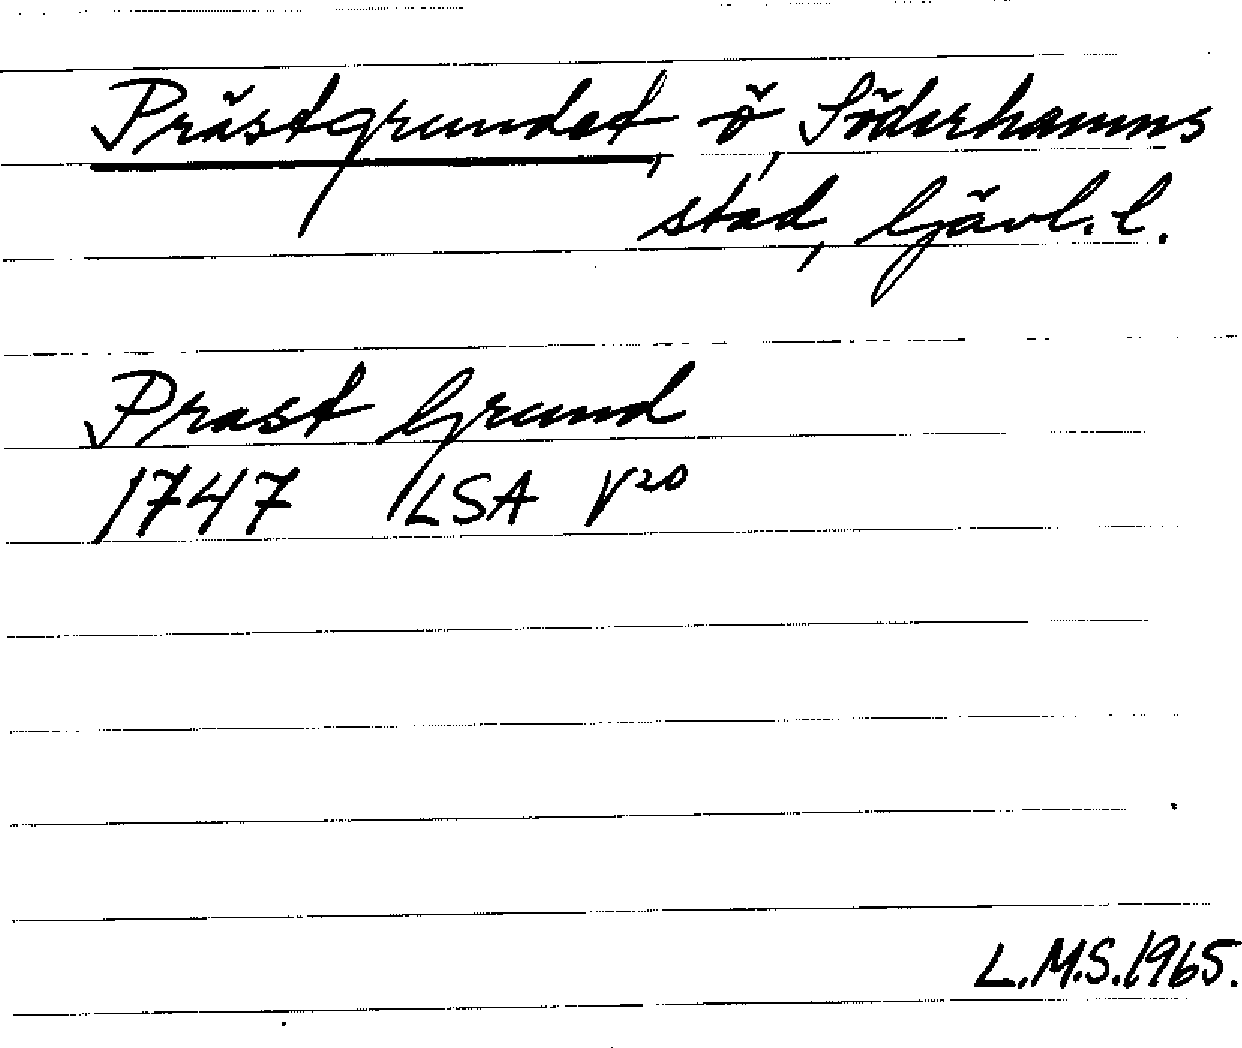 Prästgrundet, ö, Söderhamns
stad, Gävl.l.
Prast Grund
1747 LSA V20
L.M.S.1965.